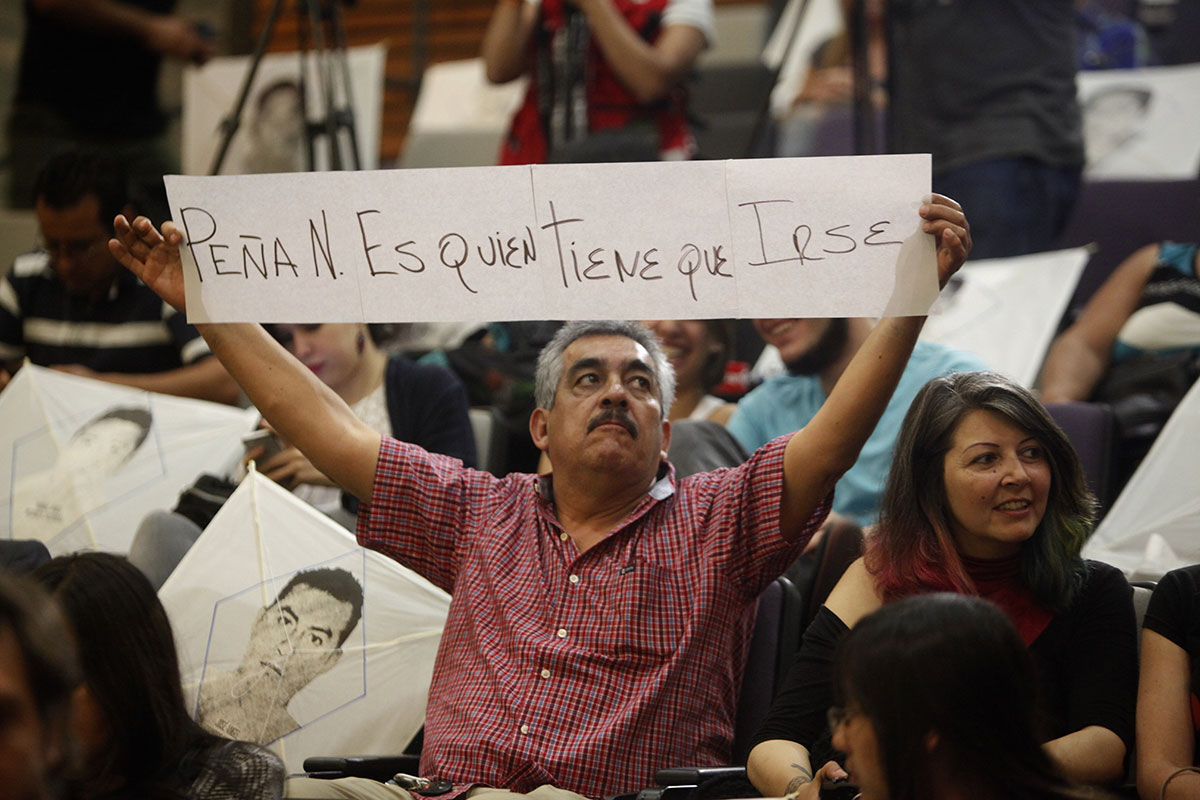 PEÑA N. Es quien tiene que IRSE